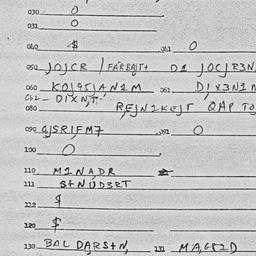 030 0
031 0
040 $ 041 0
050 JOJCR / FARBAJT+ D1 JOCJR3N
060 KOJ95JAN1M 061 D1X3N1
062 - DIXNJT-
080 REJN2KEJT QAP TO
090 GJSRIFM7 091 0
100 0
110 M1NADR
111 S+NUD3RT
112 $
120 $
130 BAL DARS+N, 131 MAG81D